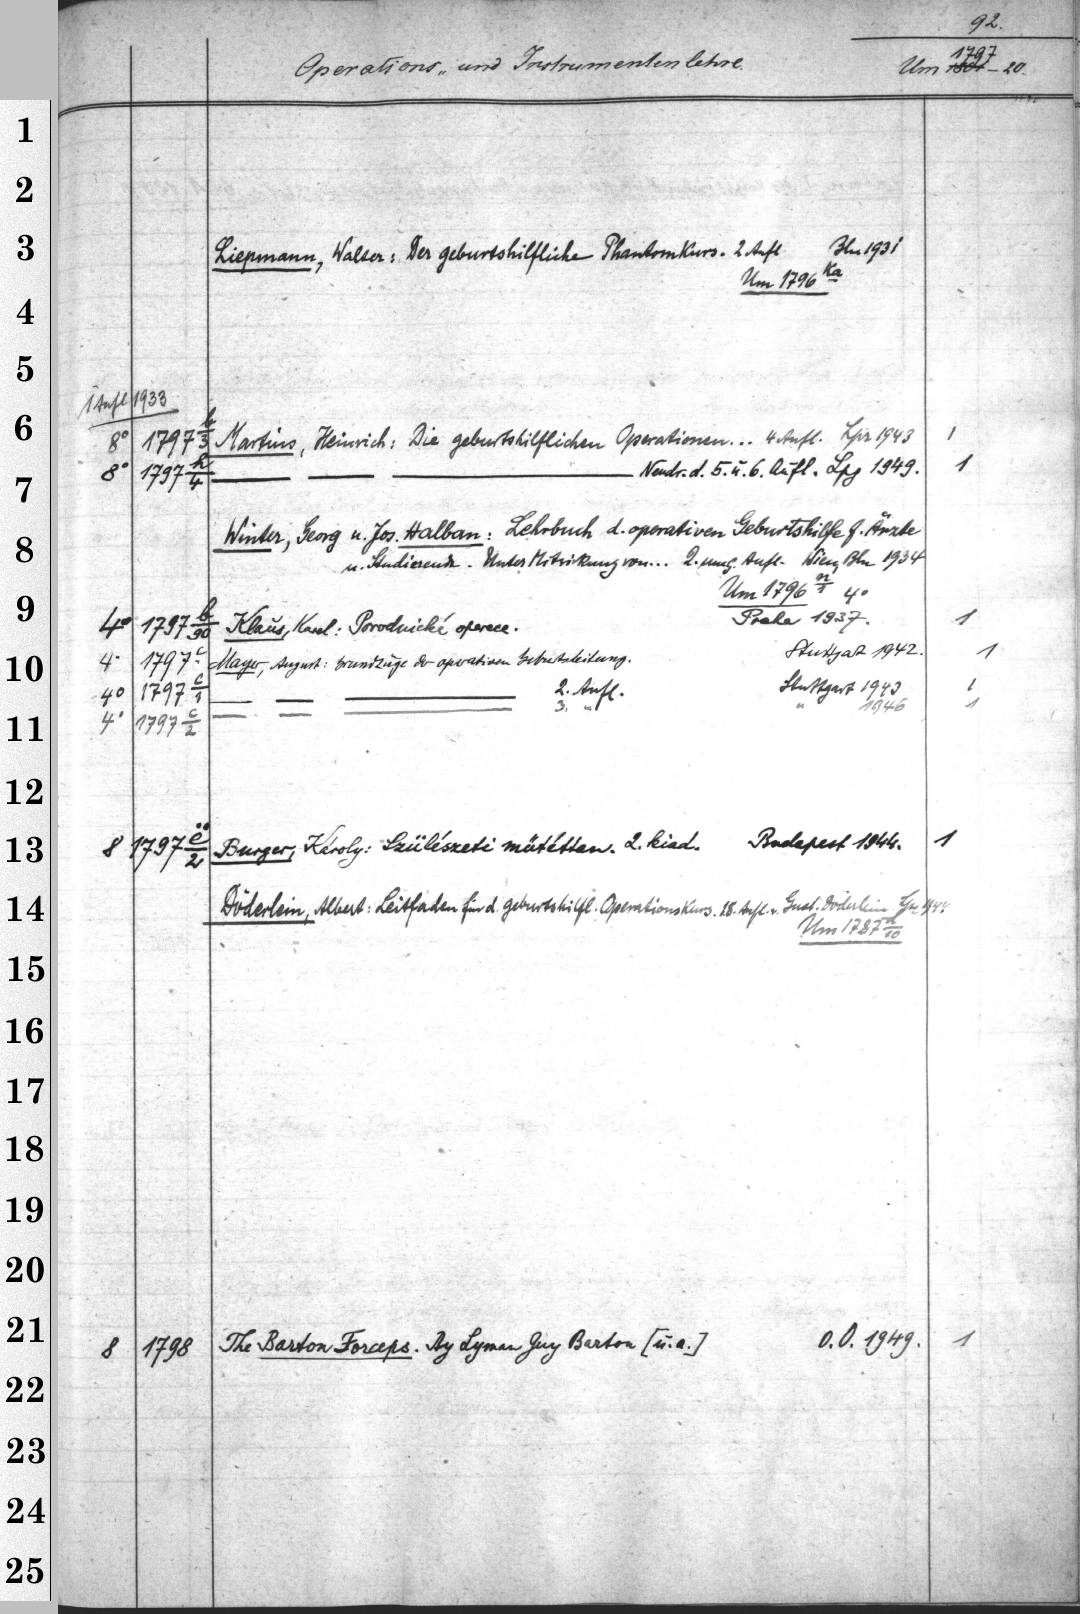 92.
Operations- und Instrumentenlehre.
Um 1797 - 20.
1
2
3 Liepmann, Walter: Der geburtshilfliche Phantomkurs. 2 Aufl Bln 1931
Um 1796 Ka
4
5
1 Aufl 1933
6 8° 1797 b/3 Martius, Heinrich: Die geburtshilflichen Operationen... 4 Aufl. Lpz 1943 1
8° 1797 b/4 — — — Neudr. d. 5. u. 6. Aufl. Lpg 1949. 1
7
Winter, Georg u. Jos. Halban: Lehrbuch d. operativen Geburtshilfe f. Ärzte
8 u. Studierende. Unter Mitwirkung von... 2. umg. Aufl. Wien, Bln 1934
Um 1796 n/1 4°
9 4° 1797 b/90 Klaus, Karel: Porodnické operece. Praha 1937. 1
10 4° 1797 c Mayer, August: Grundzüge der operativen Geburtsleitung. Stuttgart 1942. 1
4° 1797 c/1 — — — 2. Aufl. Stuttgart 1943 1
11 4° 1797 c/2 — — — 3. " " 1946 1
12
13 8 1797 /2 Burger, Károly: Szülészeti mütéttan. 2. kiad. Budapest 1944. 1
14 Döderlein, Albert: Leitfaden für d. geburtshilfl. Operationskurs. 18. Aufl. v. Gust. Döderlein
Um 1787 /10
15
16
17
18
19
20
21 8 1798 The Barton Forceps. By Lyman Guy Barton [u.a.] O.O. 1949. 1
22
23
24
25